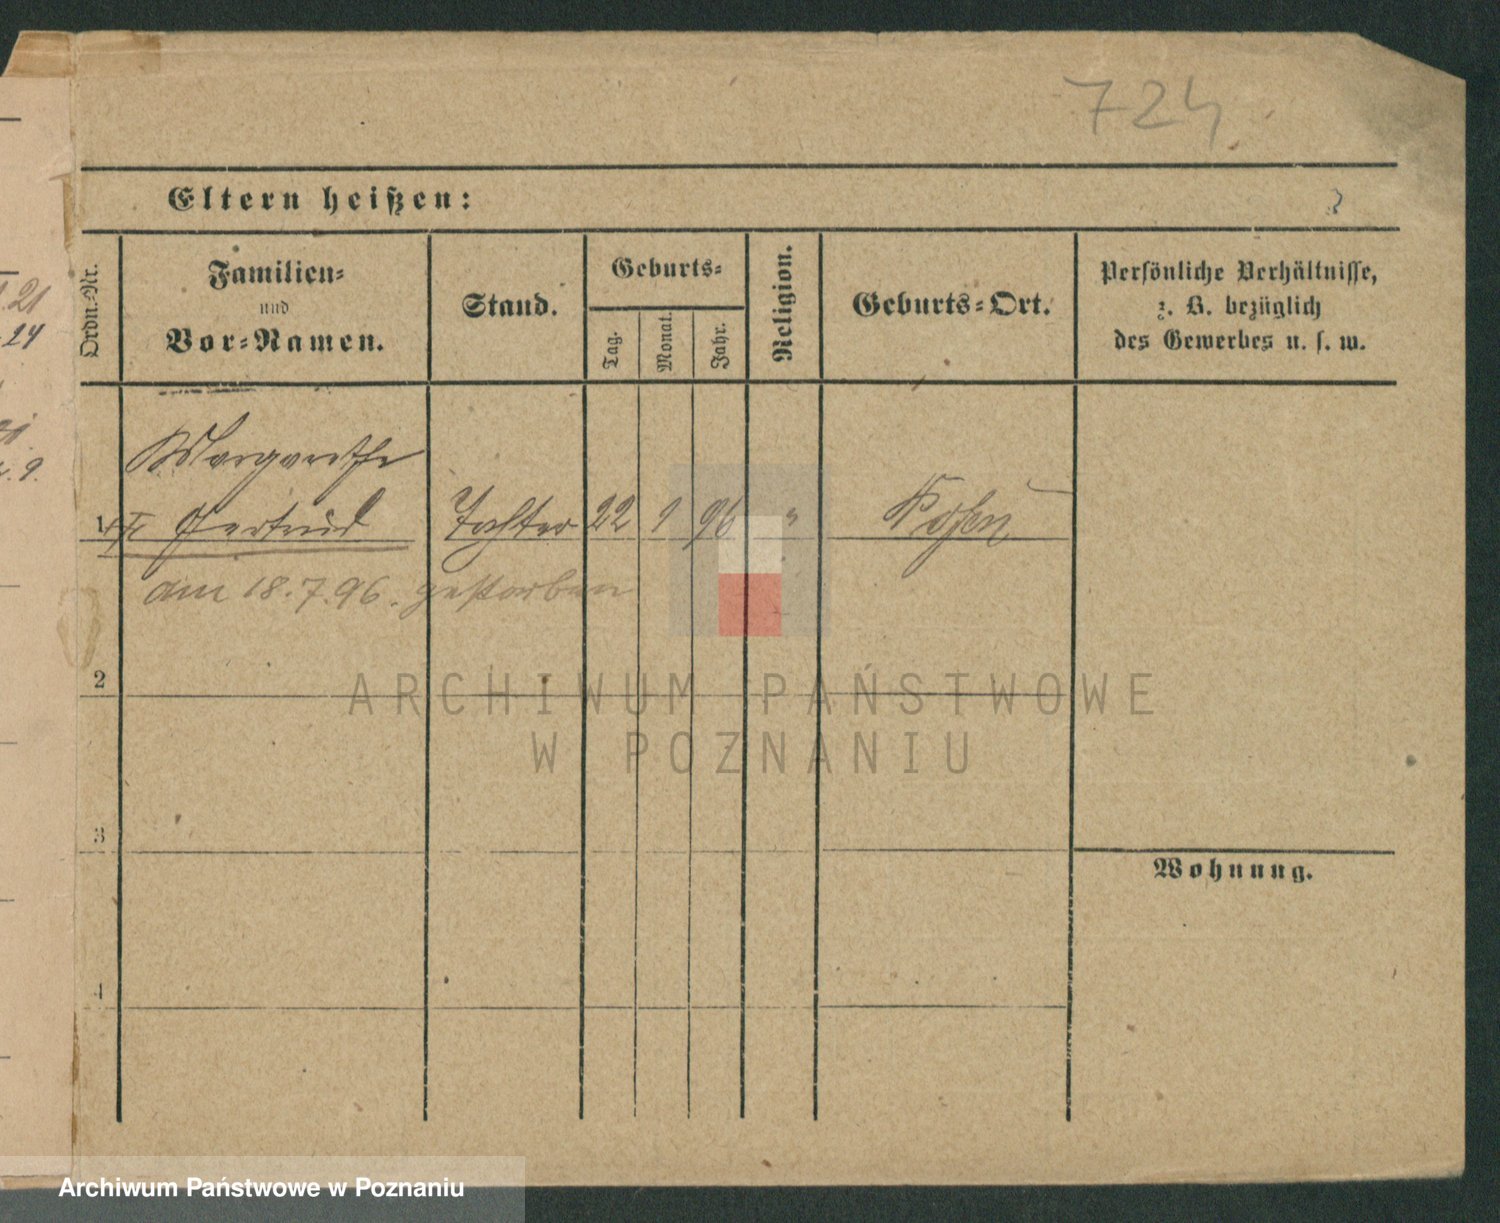 724
Eltern heißen:
Ordn.-Nr.
Familien-
und
Vor-Namen.
Stand.
Geburts-
Tag.
Monat.
Jahr.
Religion.
Geburts-Ort.
Persönliche Verhältnisse,
z. B. bezüglich
des Gewerbes u. s. w.
21
24
9.
Margarethe
1 Gertrud Tochter 22 1 96 " Posen
am 18.7.96. gestorben
2
ARCHIWUM PAŃSTWOWE
W POZNANIU
3
Wohnung.
4
Archiwum Państwowe w Poznaniu